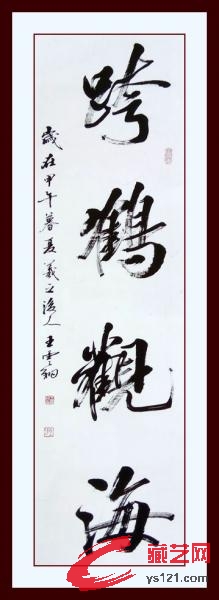 跨鶴觀海
歲在甲午暮夏義之後人王雲翔
藏艺网
ys121.com